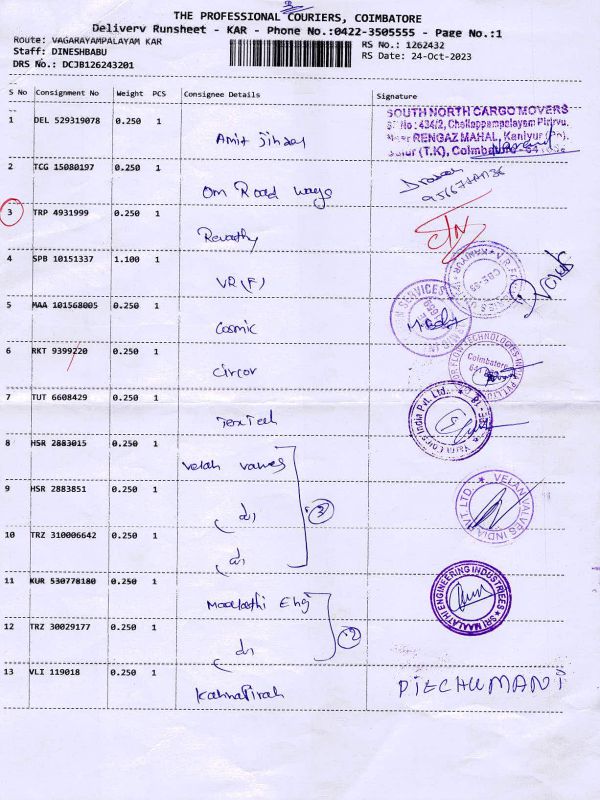 THE PROFESSIONAL COURIERS, COIMBATORE
Delivery Runsheet - KAR - Phone No.:0422-3505555 - Page No.:1
Route: VAGARAYAMPALAYAM KAR
RS No.: 1262432
Staff: DINESHBABU
RS Date: 24-Oct-2023
DRS No.: DCJB126243201
S No Consignment No Weight PCS Consignee Details Signature
1 DEL 529319078 0.250 1
SOUTH NORTH CARGO MOVERS
434/2, Chellappampalayam Pirivu,
Near RENGAZ MAHAL, Kaniyur
Sulur (T.K), Coimbatore - 641
2 TCG 15080197 0.250 1 Om Road ways
3 TRP 4931999 0.250 1 Revathy
4 SPB 10151337 1.100 1 VR (F)
5 MAA 101568005 0.250 1 Cosmic
6 RKT 9399220 0.250 1 Circor
CIRCOR FLOW TECHNOLOGIES INDIA PVT.LTD
Coimbatore
7 TUT 6608429 0.250 1
India Pvt. Ltd.
8 HSR 2883015 0.250 1
9 HSR 2883851 0.250 1
VELAN VALVES INDIA PVT. LTD.
10 TRZ 310006642 0.250 1
11 KUR 530778180 0.250 1 Maalathi Eng
SRI MAALATHI ENGINEERING INDUSTRIES
12 TRZ 30029177 0.250 1
13 VLI 119018 0.250 1